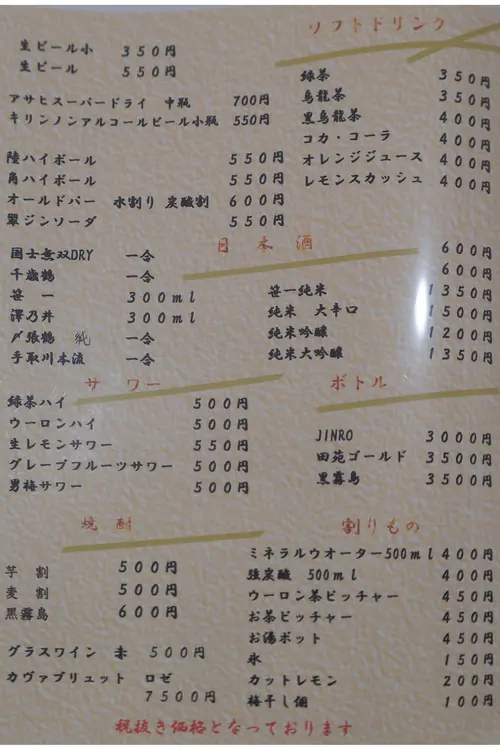 生ビール小 350円
生ビール 550円
アサヒスーパードライ 中瓶 700円
キリンノンアルコールビール小瓶 550円
陸ハイボール 550円
角ハイボール 550円
オールドパー 水割り 炭酸割 600円
翠ジンソーダ 550円
ソフトドリンク
緑茶 350円
烏龍茶 350円
黒烏龍茶 400円
コカ・コーラ 400円
オレンジジュース 400円
レモンスカッシュ 400円
日本酒
国士無双DRY 一合 600円
千歳鶴 一合 600円
笹一 300ml 笹一純米 1350円
澤乃井 300ml 純米 大辛口 1500円
〆張鶴 純 一合 純米吟醸 1200円
手取川本流 一合 純米大吟醸 1350円
サワー
緑茶ハイ 500円
ウーロンハイ 500円
生レモンサワー 550円
グレープフルーツサワー 500円
男梅サワー 500円
ボトル
JINRO 3000円
田苑ゴールド 3500円
黒霧島 3500円
焼酎
芋 割 500円
麦 割 500円
黒霧島 600円
グラスワイン 赤 500円
カヴァブリュット ロゼ
7500円
割りもの
ミネラルウオーター500ml 400円
強炭酸 500ml 400円
ウーロン茶ピッチャー 450円
お茶ピッチャー 450円
お湯ポット 450円
氷 150円
カットレモン 200円
梅干し個 100円
税抜き価格となっております